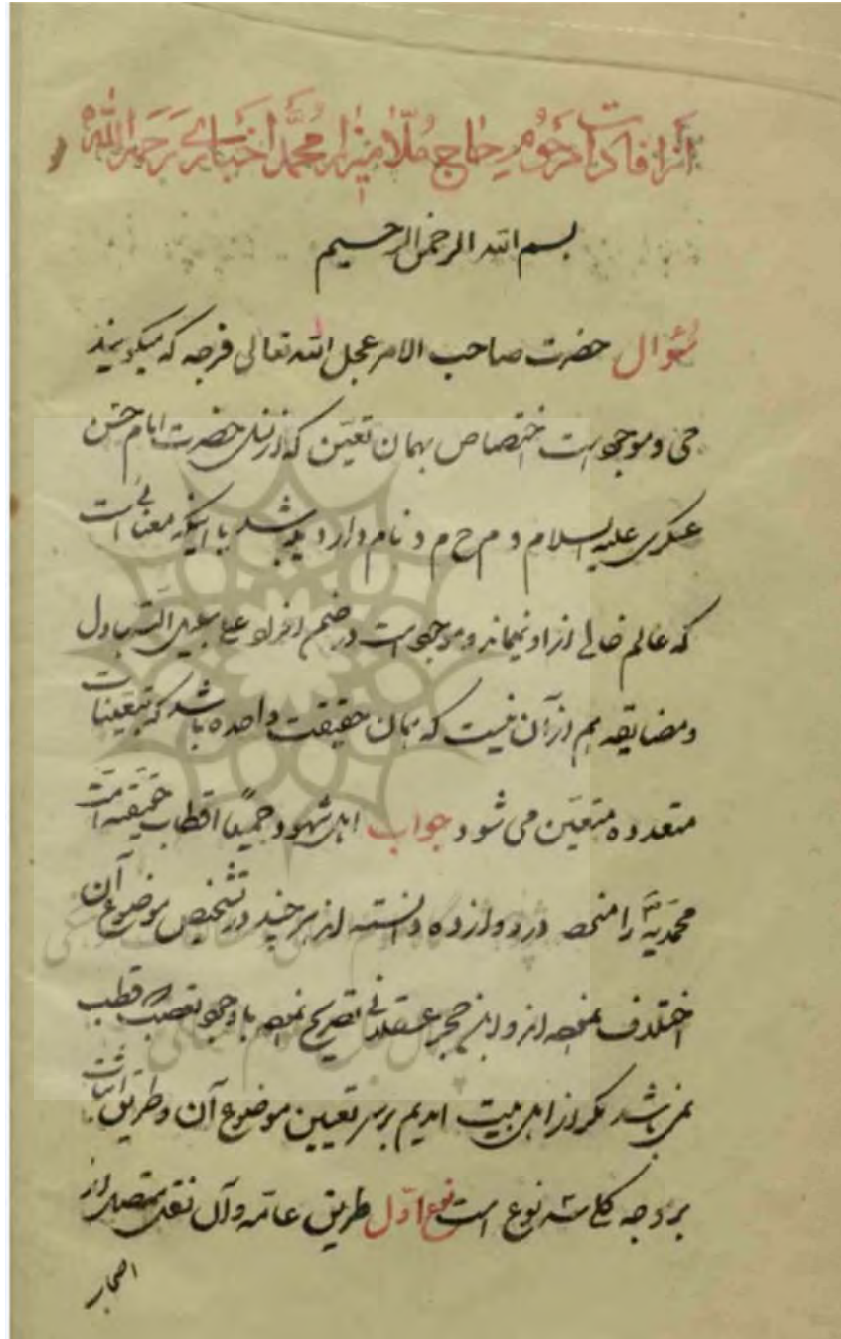 از افادات مرحوم حاج ملا میرزا محمد اخباری رحمه الله
بسم الله الرحمن الرحیم
سؤال حضرت صاحب الامر عجل الله تعالی فرجه که میگویند
حی و موجود است اختصاص بهمان تعین که از نسل حضرت امام حسن
عسکری علیه السلام و م ح م د نام دارد باشد با اینکه معنائی است
که عالم خالی از او نمیماند و موجود است در ضمن افراد علی سبیل التبادل
و مضایقه هم از آن نیست که همان حقیقت واحده باشد که بتعینات
متعدده متعین می شود جواب اهل شهود جمیعا اقطاب حقیقیه امت
محمدیه را منحصر در دوازده دانسته اند هر چند در تشخیص موضوع آن
اختلاف نموده اند و ابن حجر عسقلانی تصریح نموده با وجود تعصب که قطب
نمی باشد مگر از اهل بیت امدیم برسر تعیین موضوع آن و طریق اثبات
بر وجه کلی سه نوع است نوع اول طریق عامه و آن نقل متصل از
اخبار